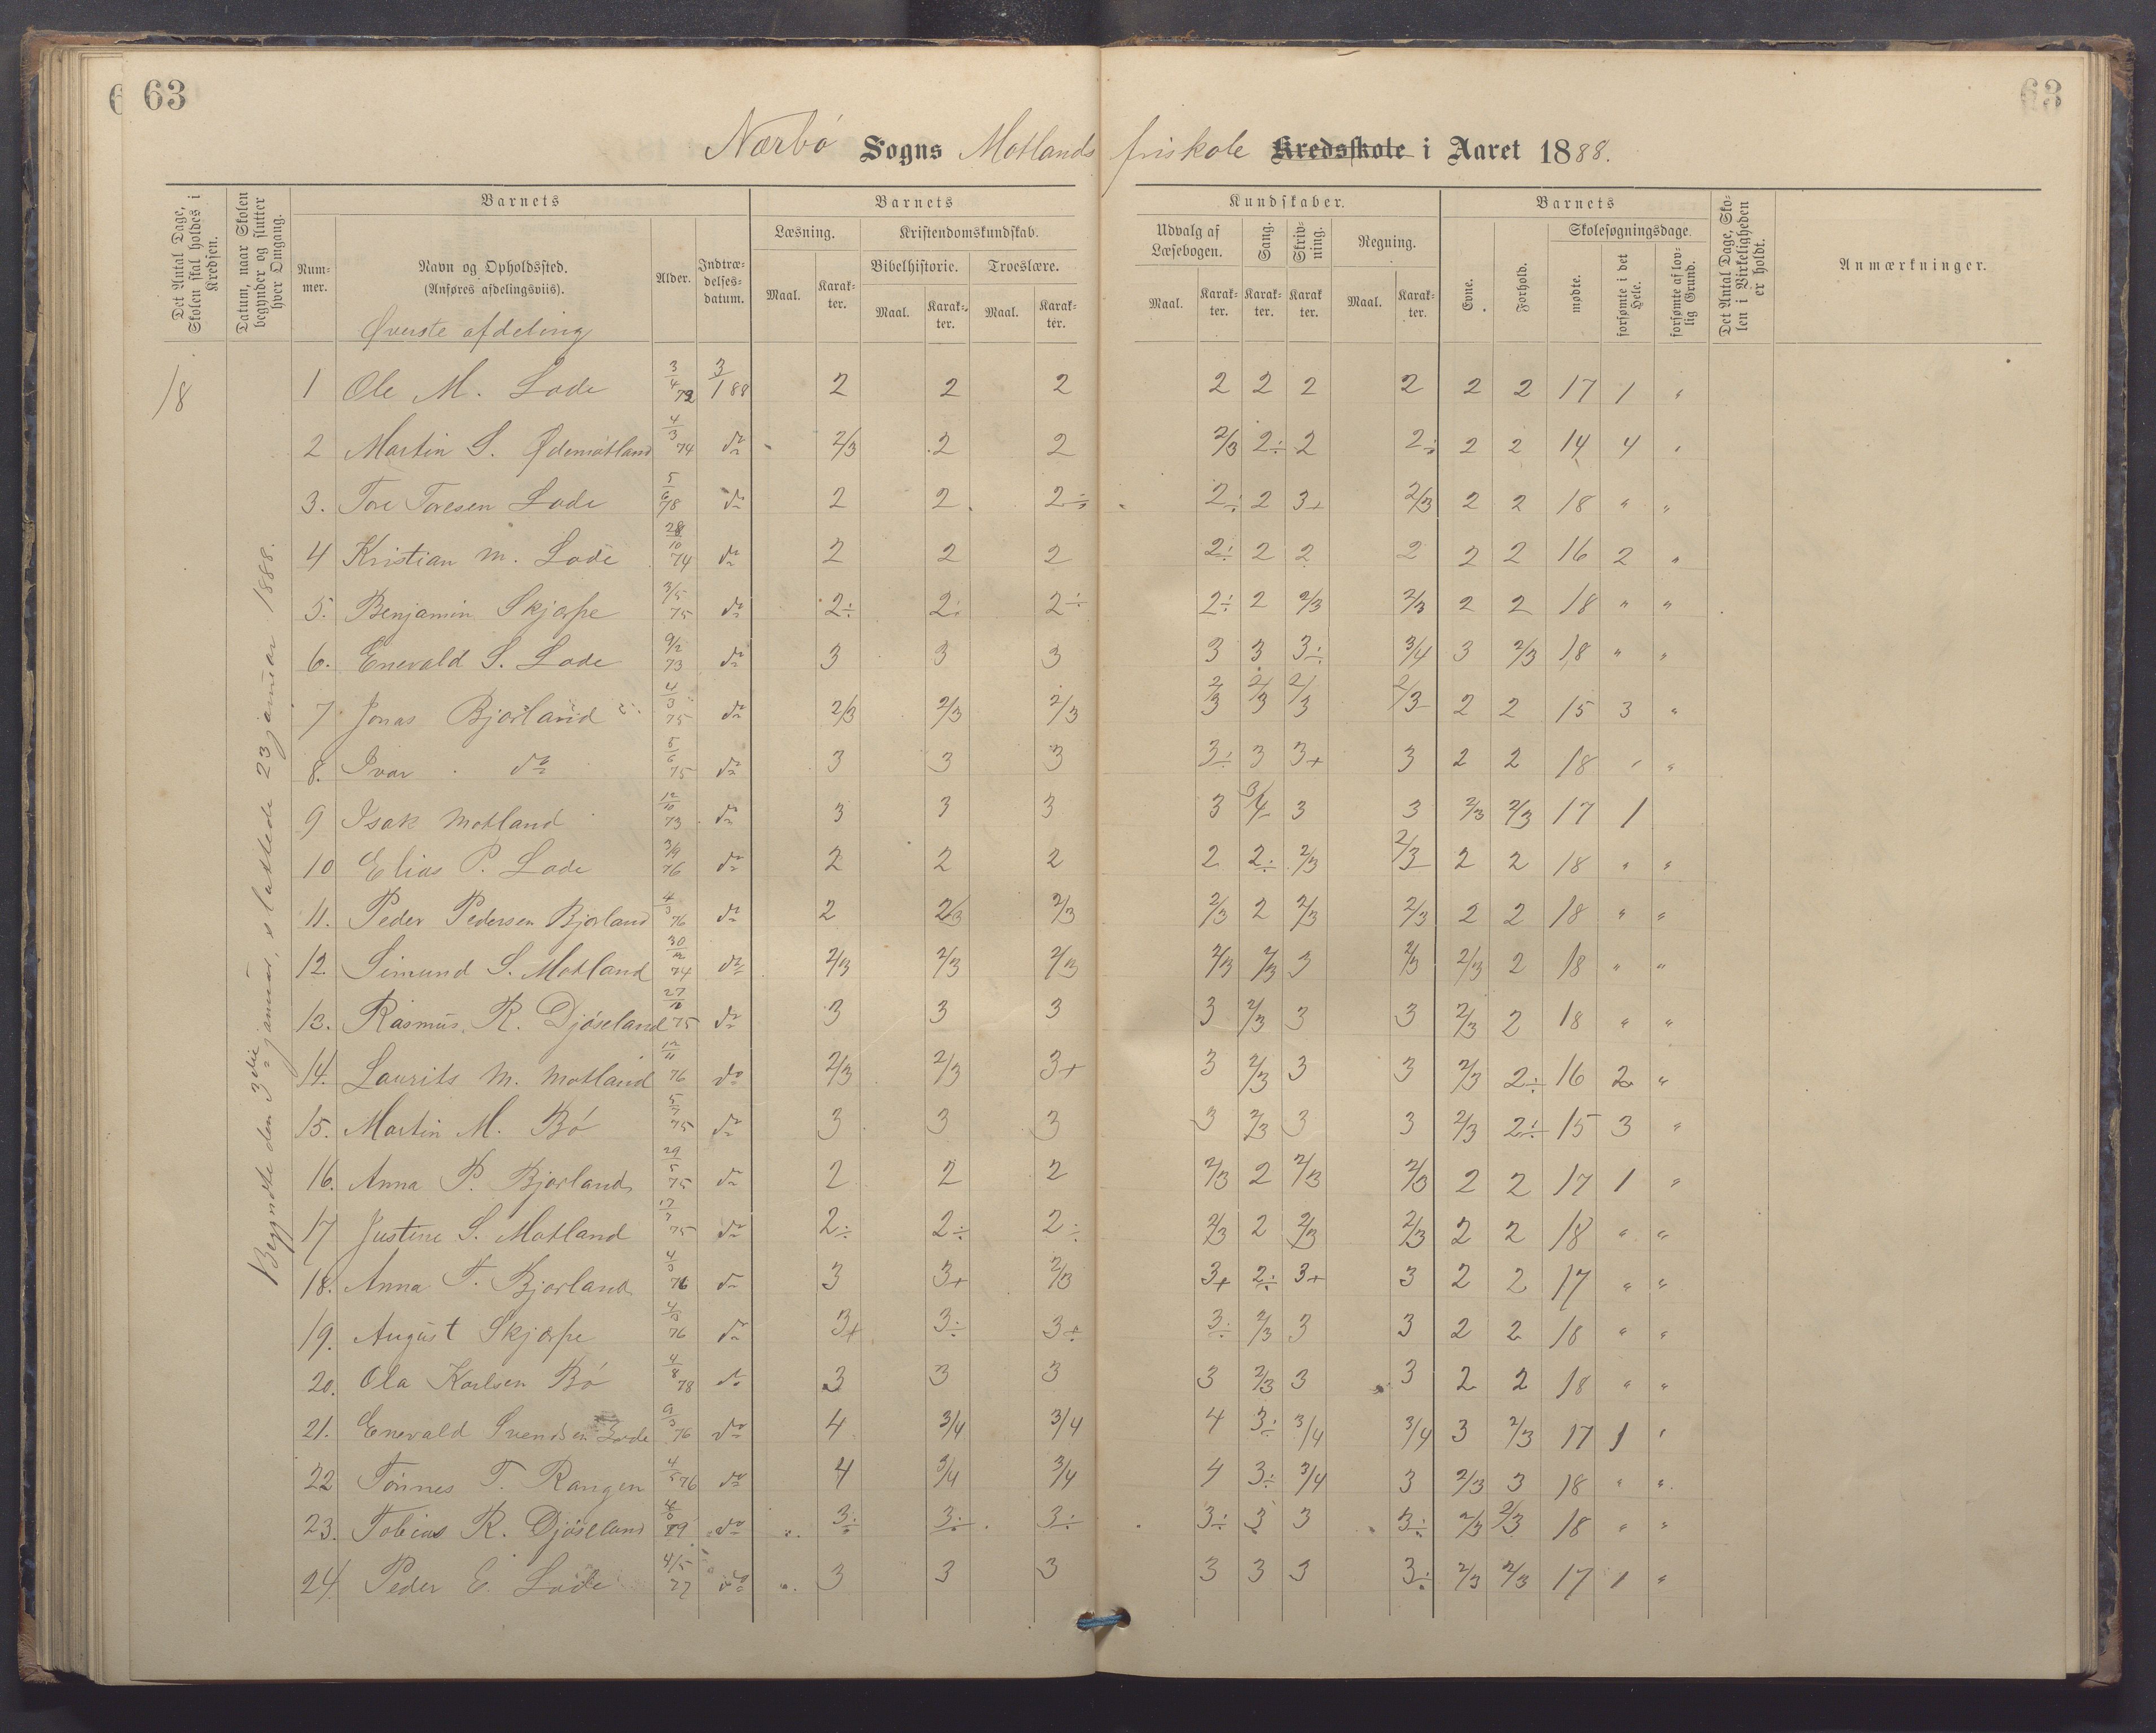 63
63
Nærbö Sogns Motlands friskole Kredsskole i Aaret 1888.
Det Antal Dage, Skolen skal holdes i Kredsen.
Datum, naar Skolen begynder og slutter hver Omgang.
Barnets
Barnets
Kundskaber.
Barnets
Det Antal Dage, Skolen i Virkeligheden er holdt.
Anmærkninger.
Nummer.
Navn og Opholdssted.
(Anføres afdelingsviis).
Alder.
Indtrædelsesdatum.
Læsning.
Kristendomskundskab.
Bibelhistorie.
Troeslære.
Udvalg af Læsebogen.
Sang.
Skrivning.
Regning.
Evne.
Forhold.
Skolesøgningsdage.
mødte.
forsømte i det Hele.
forsømte af lovlig Grund.
Maal. Karakter. Maal. Karakter. Maal. Karakter. Maal. Karakter. Karakter. Karakter Maal. Karakter.
Øverste afdeling
18
Begyndte den 3die januar, sluttede 23 januar 1888.
1 Ole M. Lode 3/4 72 3/1 88 2 2 2 2 2 2 2 2 2 17 1 "
2 Martin S. Ødemotland 4/3 74 do 2/3 2 2 2/3 2÷ 2 2÷ 2 2 14 4 "
3. Tore Toresen Lode 5/6 78 do 2 2 2÷ 2÷ 2 3+ 2/3 2 2 18 " "
4 Kristian M. Lode 28/10 74 do 2 2 2 2÷ 2 2 2 2 2 16 2 "
5. Benjamin Skjærpe 3/5 75 do 2÷ 2÷ 2÷ 2÷ 2 2/3 2/3 2 2 18 " "
6. Enevald S. Lode 9/2 73 do 3 3 3 3 3 3÷ 3/4 3 2/3 18 " "
7 Jonas Bjorland 4/3 75 do 2/3 2/3 2/3 2/3 2/3 2/3 2/3 2 2 15 3 "
8. Ivar do 5/6 75 do 3 3 3 3÷ 3 3+ 3 2 2 18 " "
9 Isak Motland 12/10 73 do 3 3 3 3 3/4 3 3 2/3 2/3 17 1
10 Elias P. Lode 3/9 76 do 2 2 2 2 2÷ 2/3 2/3 2 2 18 " "
11. Peder Pedersen Bjorland 4/3 76 do 2 2/3 2/3 2/3 2 2/3 2/3 2 2 18 " "
12. Simund S. Motland 30/12 74 do 2/3 2/3 2/3 2/3 2/3 3 2/3 2/3 2 18 " "
13. Rasmus R. Djöseland 27/10 75 do 3 3 3 3 2/3 3 3 2/3 2 18 " "
14. Laurits M. Motland 12/11 76 do 2/3 2/3 3+ 3 2/3 3 3 2/3 2÷ 16 2 "
15. Martin M. Bö 5/7 75 do 3 3 3 3 2/3 3 3 2/3 2÷ 15 3 "
16. Anna P. Bjorland 29/5 75 do 2 2 2 2/3 2 2/3 2/3 2 2 17 1 "
17 Justine S. Motland 17/7 75 do 2÷ 2÷ 2÷ 2/3 2 2/3 2/3 2 2 18 " "
18. Anna T. Bjorland 76 do 3 3+ 2/3 3+ 2÷ 3+ 3 2 2 17 " "
19. August Skjærpe 76 do 3+ 3÷ 3÷ 3÷ 2/3 3 3 2 2 18 " "
20. Ola Karlsen Bö 4/8 78 do 3 3 3 3 2/3 3 3 2 2 18 " "
21. Enevald Svendsen Lode 9/3 76 do 4 3/4 3/4 4 3÷ 3/4 3/4 3 2/3 17 1 "
22 Tönnes T. Rangen 4/5 76 do 4 3/4 3/4 4 3÷ 3/4 3 2/3 3 18 " "
23. Tobias R. Djöseland do 3÷ 3÷ 3÷ 3÷ 3 3 3÷ 2/3 2/3 18 " "
24. Peder E. Lode 4/5 77 do 3 3 3 3 3 3 3÷ 2/3 2/3 17 1 "